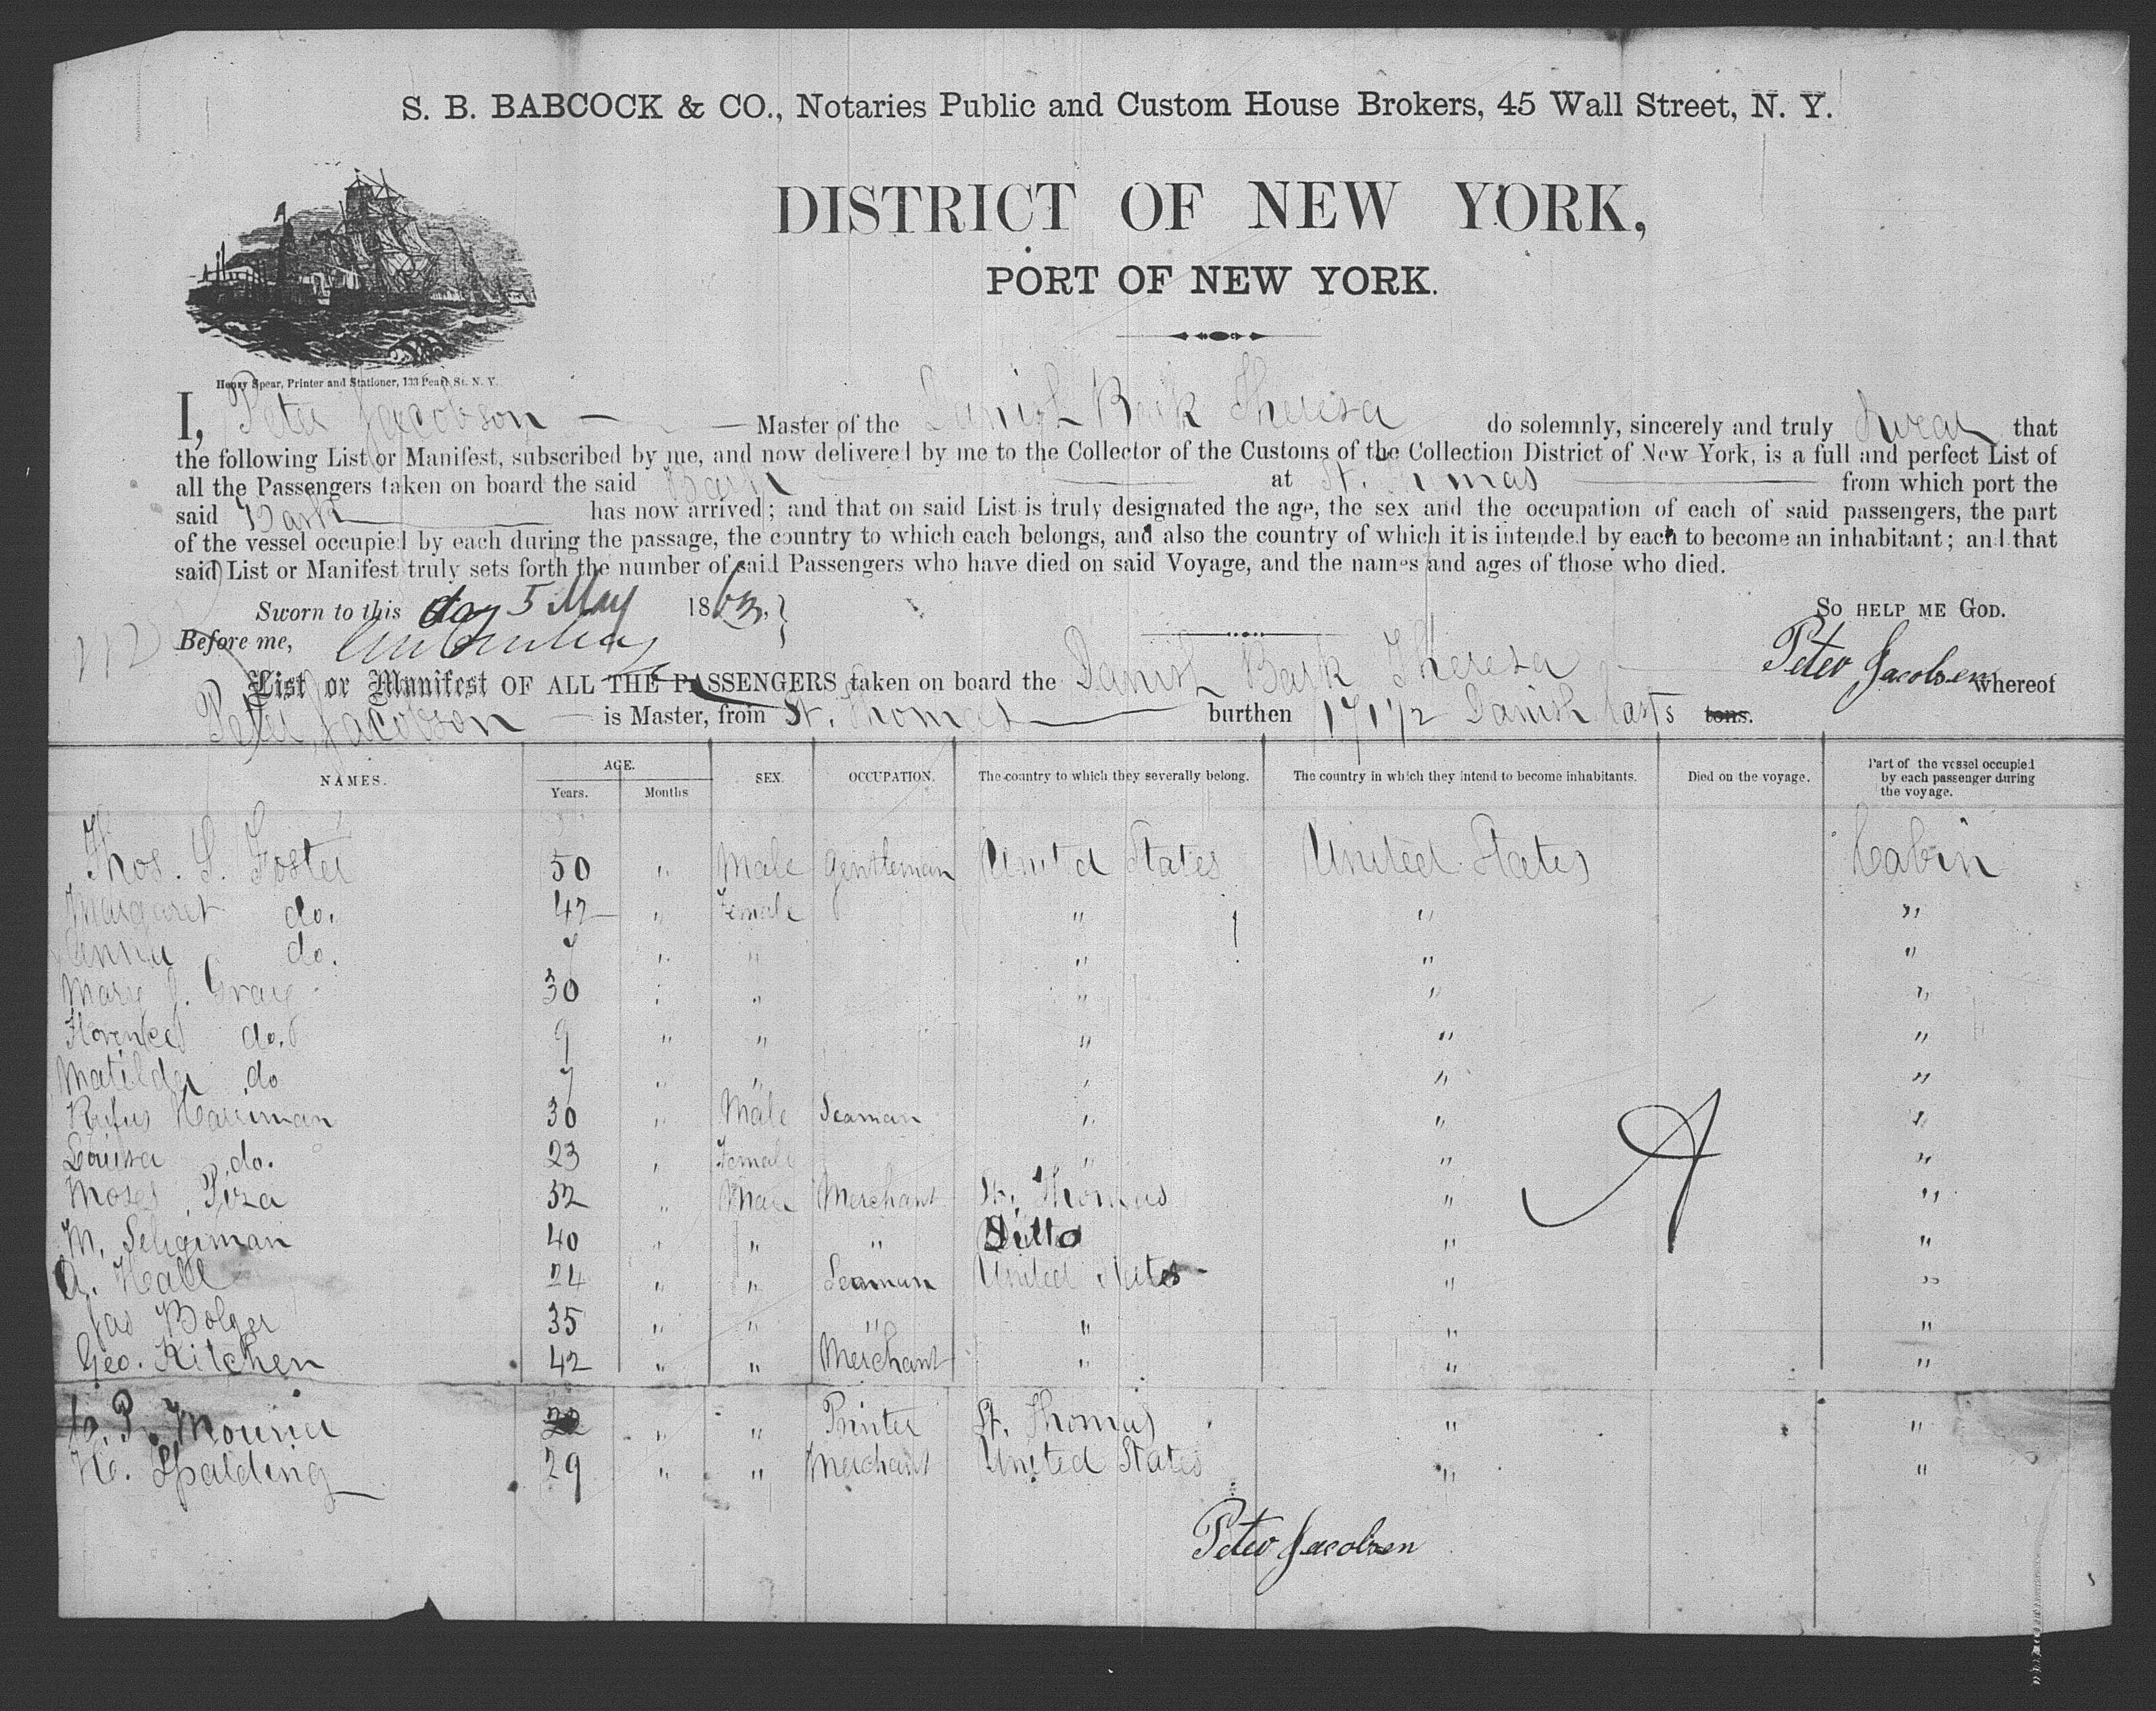 S. B. BABCOCK & CO., Notaries Public and Custom House Brokers, 45 Wall Street, N. Y.
DISTRICT OF NEW YORK,
PORT OF NEW YORK.
Henry Spear, Printer and Stationer, 133 Pearl St. N. Y.
I, Peter Jacobson Master of the Danish Bark Theresa do solemnly, sincerely and truly Swear that
the following List or Manifest, subscribed by me, and now delivered by me to the Collector of the Customs of the Collection District of New York, is a full and perfect List of
all the Passengers taken on board the said Bark at St. Thomas from which port the
said Bark has now arrived; and that on said List is truly designated the age, the sex and the occupation of each of said passengers, the part
of the vessel occupied by each during the passage, the country to which each belongs, and also the country of which it is intended by each to become an inhabitant; and that
said List or Manifest truly sets forth the number of said Passengers who have died on said Voyage, and the names and ages of those who died.
Sworn to this day 5 May 1863, } SO HELP ME GOD.
Before me, Peter Jacobsen
List or Manifest OF ALL THE PASSENGERS taken on board the Danish Bark Theresa whereof
Peter Jacobson is Master, from St. Thomas burthen 171 1/2 Danish lasts tons.
NAMES. AGE. Years. Months SEX. OCCUPATION. The country to which they severally belong. The country in which they intend to become inhabitants. Died on the voyage. Part of the vessel occupied by each passenger during the voyage.
Thos. S. Foster 50 " Male Gentleman United States United States Cabin
Margaret do. 42 " Female " " "
Anna do. " " " " "
Mary J. Gray 30 " " " " "
Florence do. 9 " " " " "
Matilda do 7 " " " " "
Rufus Harriman 30 " Male Seaman " " "
Louisa do. 23 " Female " " "
Moses Piza 32 " Male Merchant St. Thomas " "
M. Seligman 40 " " " Ditto " "
A. Hall 24 " " Seaman United States " "
Jas Bolger 35 " " " " " "
Geo. Kitchen 42 " " Merchant " " "
P. Mourier 22 " " Printer St. Thomas " "
H. Spalding 29 " " Merchant United States " "
A
Peter Jacobsen